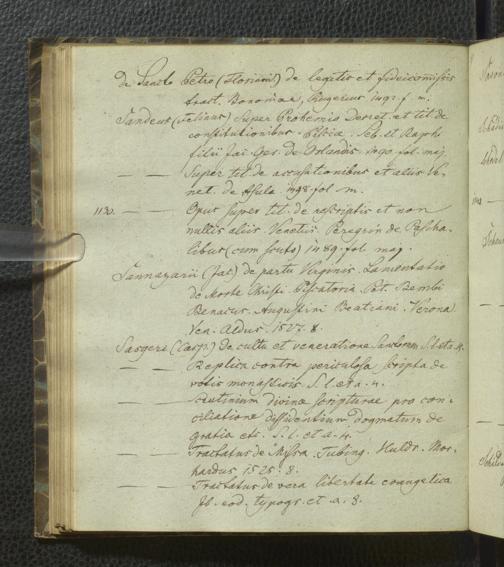 de Sancto Petro (Florian.) de legitis et fideicomissis
tract. Bononiae, Rugerius 1492. f. m.
Sandeus (Felinus) Super Prohemio Decret. et tit. de
constitutionibus. Piscia. Seb. et Raph.
filii Jac. Ger. de Orlandis. 1490. fol. maj.
— — Super tit. de accusationibus et aliis Ve-
net. de Asula 1498. fol. m.
1130. — — Opus super tit. de rescriptis et non
nullis aliis Venetiis. Peregrin. de Pascha-
libus (cum scuto) 1489. fol. maj.
Sannazarii (Jac.) de partu Virginis. Lamentatio
de Morte Christi. Piscatoria. Pet. Bembi
Benacus. Augustini Beatiani. Verona
Ven. Aldus. 1527. 8.
Sasgeri (Casp.) de cultu et veneratione Sanctorum. S. l. et a. 4.
— — Replica contra periculosa scripta de
votis monasticis. S. l. et a. 4.
— — Scrutinium divinae scripturae pro con-
ciliatione dissidentium dogmatum de
gratia etc. S. l. et a. 4.
— — Tractatus de Missa. Tubing. Huldr. Mor-
hardus 1525. 8.
— — Tractatus de vera libertate evangelica
Jb. eod. typogr. et a. 8.